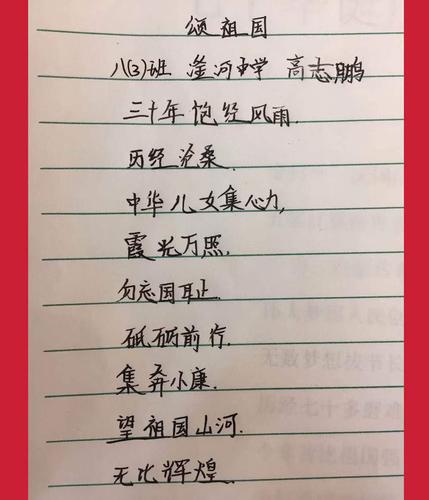 颂祖国
八(3)班 淦河中学 高志鹏
三十年饱经风雨.
历经沧桑.
中华儿女集心力,
霞光万照.
勿忘国耻.
砥砺前行.
集奔小康.
望祖国山河.
无比辉煌.